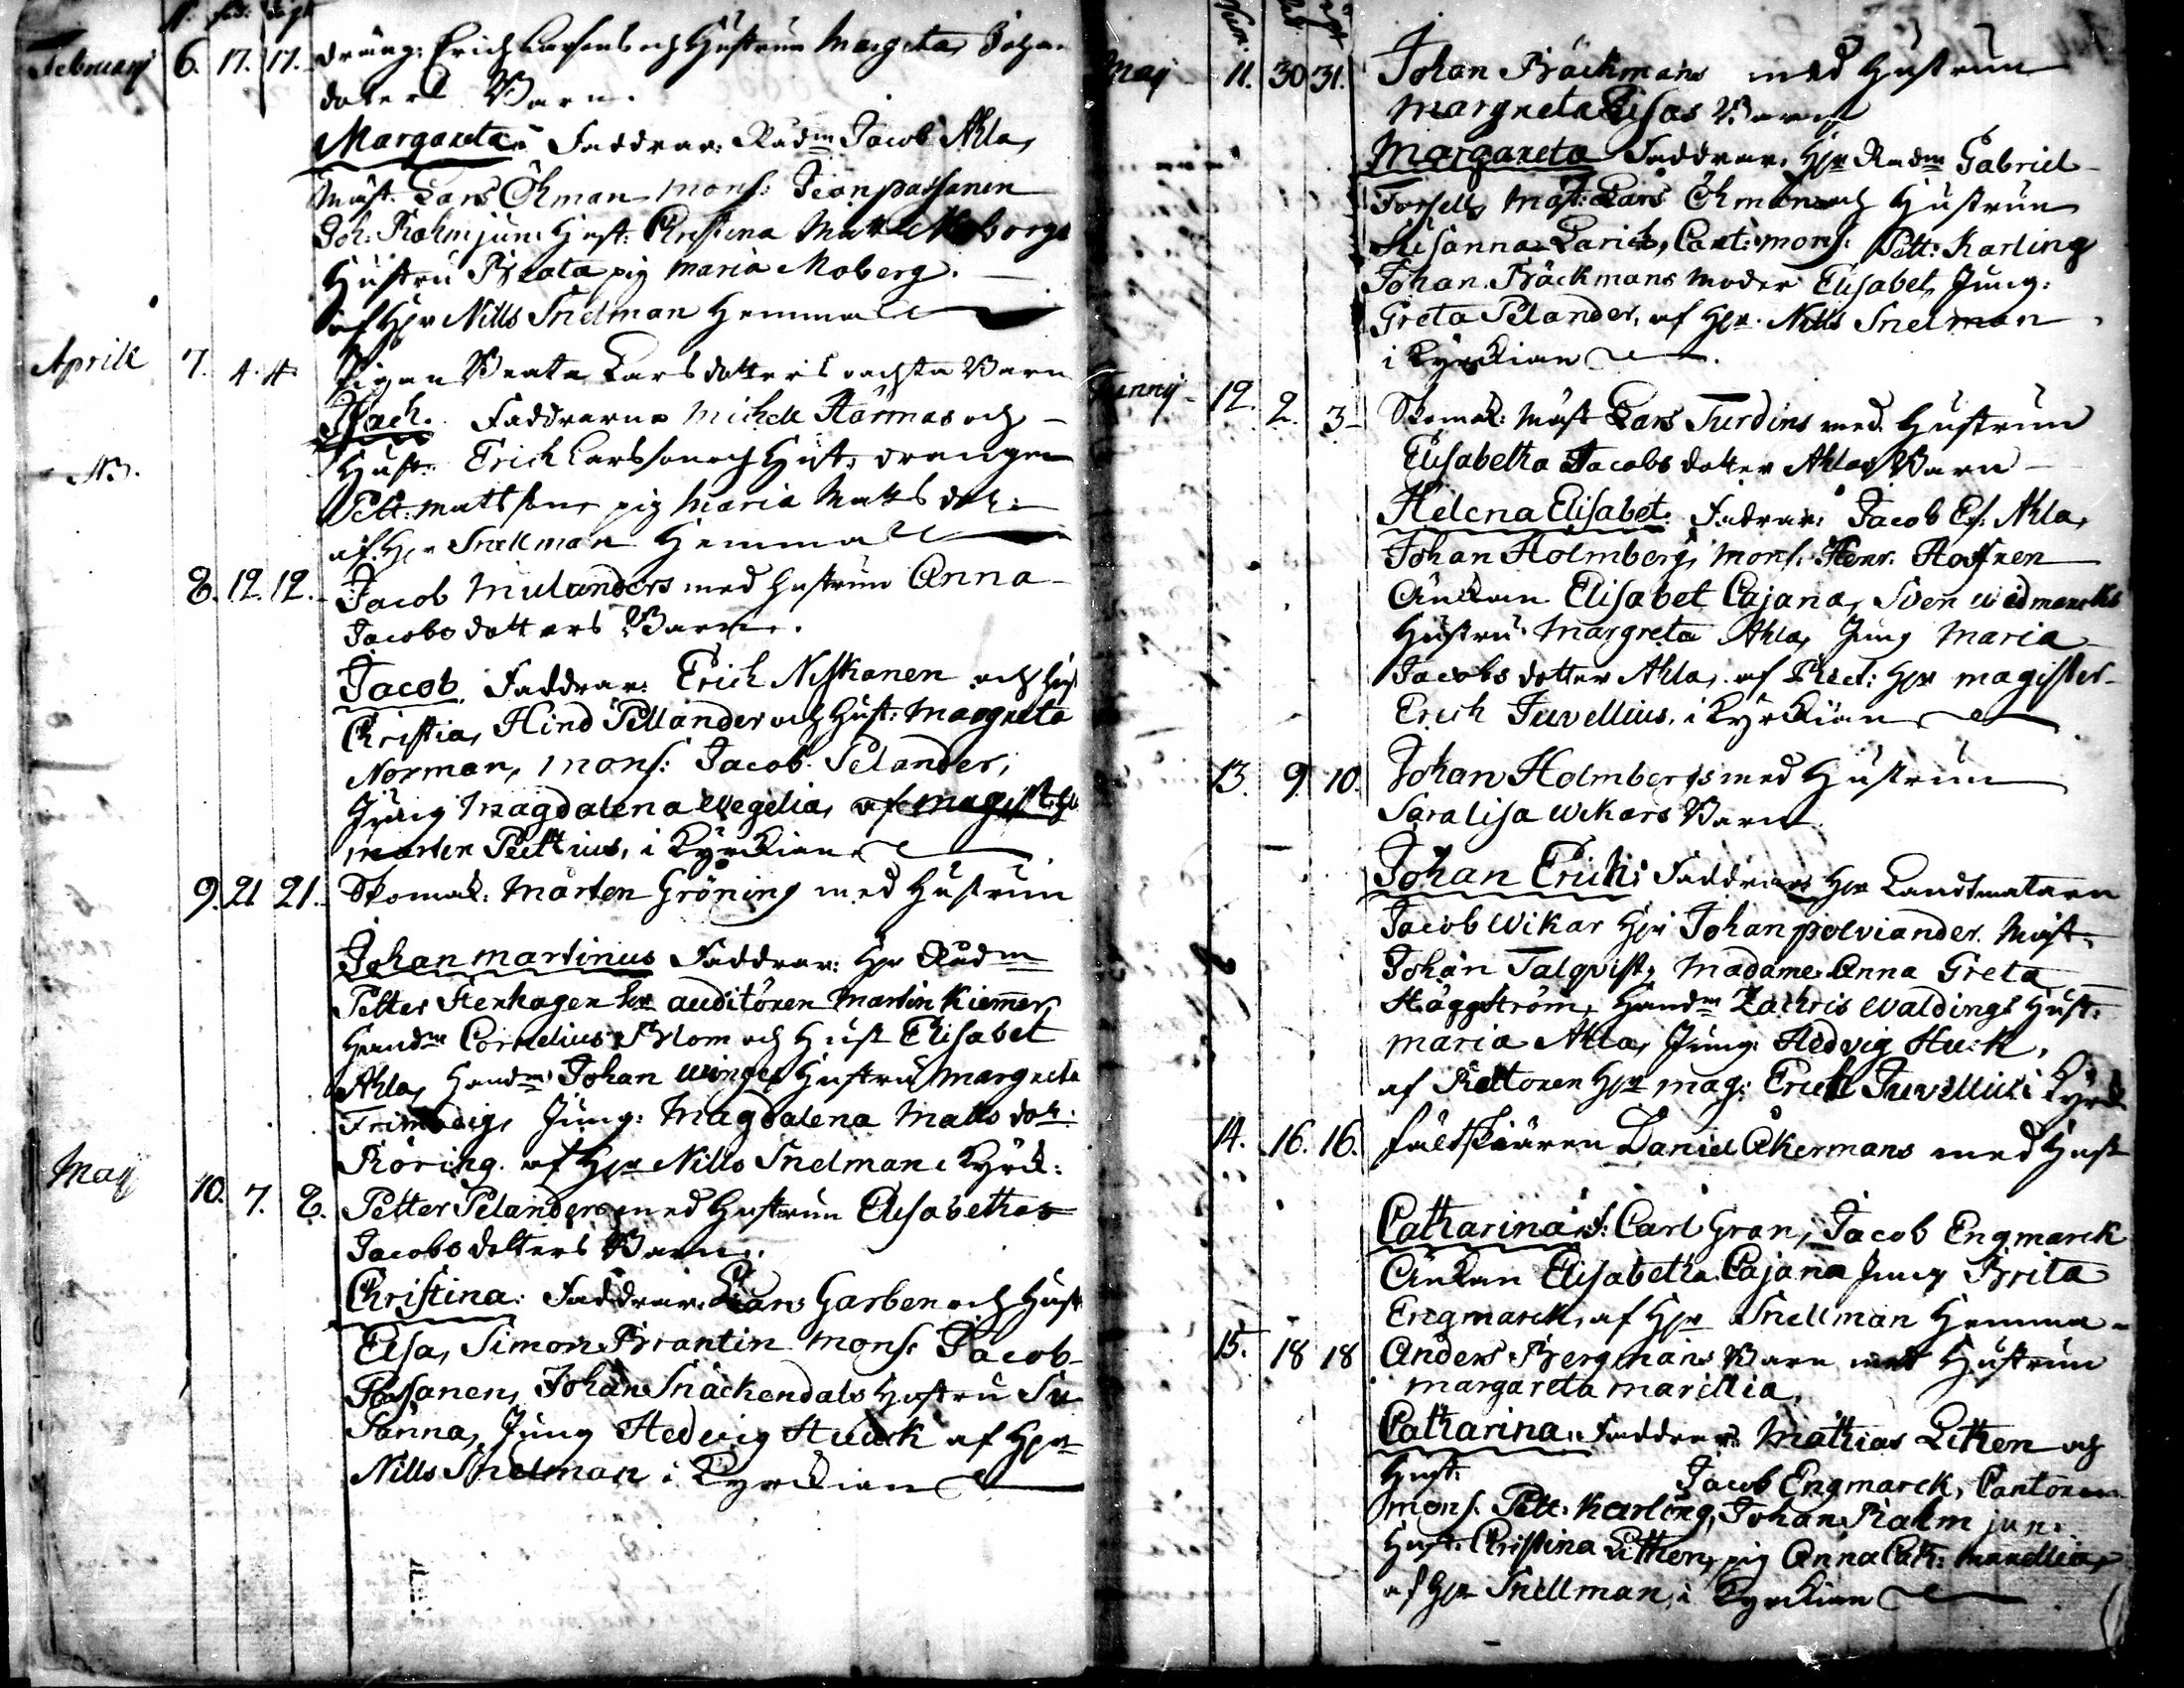 Februarij 6. 17. 17. dräng: Erich Larsons och Hustrun Margeta Johans
dotters Barn.
Margareta. Faddrar: Rådm Jacob Ahla,
Mäst. Lars Öhman mons: Jean passanen
Joh: Frohm jun: Hust: Christina
Hustru Beata pig Maria Moberg.
af Hr Nills Snelman Hemma
Aprill 7. 4. 4 Pigan Beata Larsdotters oächta Barn
Faddrarne Michell Härmas och
NB. Hust: Erich Larsson och Hust, drängen
Pett: Mattsson pig Maria Matts dott:
af Hr Snellman Hemma
8. 12. 12. Jacob Mulanders med hustrun Anna
Jacobs dotters Barn.
Jacob. Faddrar: Erich Niskanen och hust
Christia, Hind Pellander och Hust: Margreta
Norman, mons: Jacob Pelander,
Jung Magdalena Wegelia, af Magist: Hr
Mårten Peitzius, i Kyrckian
9. 21 21. Skomak: Mårten Gröning med Hustrun
Johan Martinus Faddrar: Hr Rådm
Petter Stenhagen Hr auditören Martin Kiemer,
Handm Cornelius Blom och Hust Elisabet
Ahla, Handm Johan Winges Hustru Margreta
Frimodig, Jung: Magdalena Matts dott:
Röring. af Hr Nills Snelman i Kyrck:
Maij 10. 7. 8. Petter Pelanders med hustrun Elisabethas
Jacobs dotters Barn.
Christina: Faddrar: Lars Garben och Hust
Elsa, Simon Brantin Mons: Jacob
Passanen, Johan Snäckendals hustru Su
sanna, Jung Hedvig Huuck af Hr
Nills Snelman i Kyrckian
Maij 11. 30 31. Johan Bäckmans med Hustrun
Margreta Lisas Barn
Margareta Faddrar, Hr Rådm Gabriel
Forsell, Mäst: Lars Öhman och Hustrun
Susanna Larich, Cant: Mons: Pett: Karling
Johan Bäckmans Moder Elisabet, Jung:
Greta Pelander, af Hr Nills Snelman
i Kyrckian
Junij 12. 2. 3 Skomak: Mäst Lars Turdins med Hustrun
Elisabetha Jacobs dotter Ahlas Barn
Helena Elisabet: Fadrar: Jacob Es: Ahla,
Johan Holmberg, Mons: Henr. Hoffren
Änckan Elisabet Cajana, Sven Widmarcks
Hustru Margreta Ahla, Jung Maria
Jacobs dotter Ahla, af Rect: Hr Magister
Erich Juvellius, i Kyrckian
13. 9. 10. Johan Holmbergs med Hustrun
Saralisa Wikars Barn
Johan Erich: Faddrar: Hr Landtmätarn
Jacob Wikar Hr Johan polviander. Mäst:
Johan Talqvist, Madame Anna Greta
Häggström, Handm Zachris Waldings Hust:
Maria Ahla, Jung: Hedvig Huck,
af Rectoren Hr mag: Erich Juvellius i Kyrck
14. 16. 16. fältskiären Daniel Åkermans med Hust
Catharina F: Carl Gran, Jacob Engmarck
Änckan Elisabetha Cajana Jung Brita
Engmarck, af Hr Snellman Hemma
15. 18 18 Anders Bergmans Barn med Hustrun
Margareta Marillia,
Catharina. Faddrar: Mathias Lithen och
Hust: Jacob Engmarck, Cantoren
Mons. Pett: Karling, Johan Frahm jun:
Hust: Christina Lithen, pig Anna Cath:
af Hr Snellman, i Kyrckian